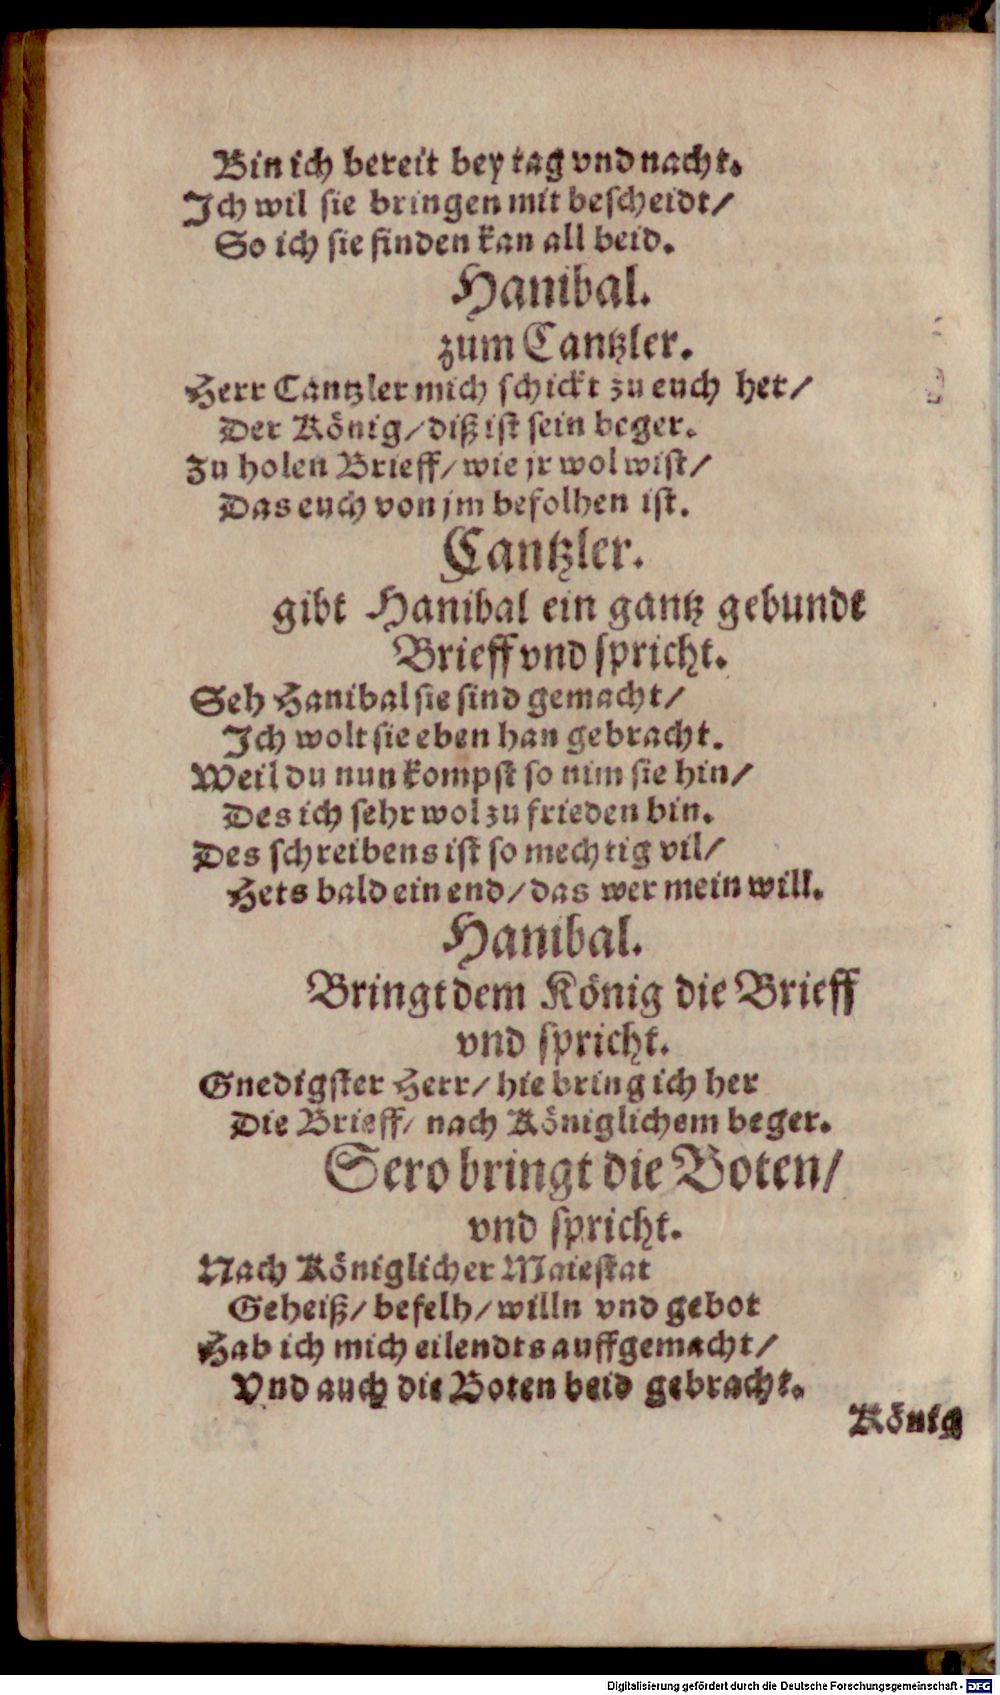 Bin ich bereit bey tag vnd nacht.
Ich wil sie bringen mit bescheidt/
So ich sie finden kan all beid.
Hanibal.
zum Cantzler.
Herr Cantzler mich schickt zu euch her/
Der König/ diß ist sein beger.
Zu holen Brieff/ wie jr wol wist/
Das euch von jm befolhen ist.
Cantzler.
gibt Hanibal ein gantz gebundt
Brieff vnd spricht.
Seh Hanibal sie sind gemacht/
Ich wolt sie eben han gebracht.
Weil du nun kompst so nim sie hin/
Des ich sehr wol zu frieden bin.
Des schreibens ist so mechtig vil/
Hets bald ein end/ das wer mein will.
Hanibal.
Bringt dem König die Brieff
vnd spricht.
Gnedigster Herr/ hie bring ich her
Die Brieff/ nach Königlichem beger.
Sero bringt die Boten/
vnd spricht.
Nach Königlicher Maiestat
Geheiß/ befelh/ willn vnd gebot
Hab ich mich eilendts auffgemacht/
Vnd auch die Boten beid gebracht.
König
Digitalisierung gefördert durch die Deutsche Forschungsgemeinschaft - DFG